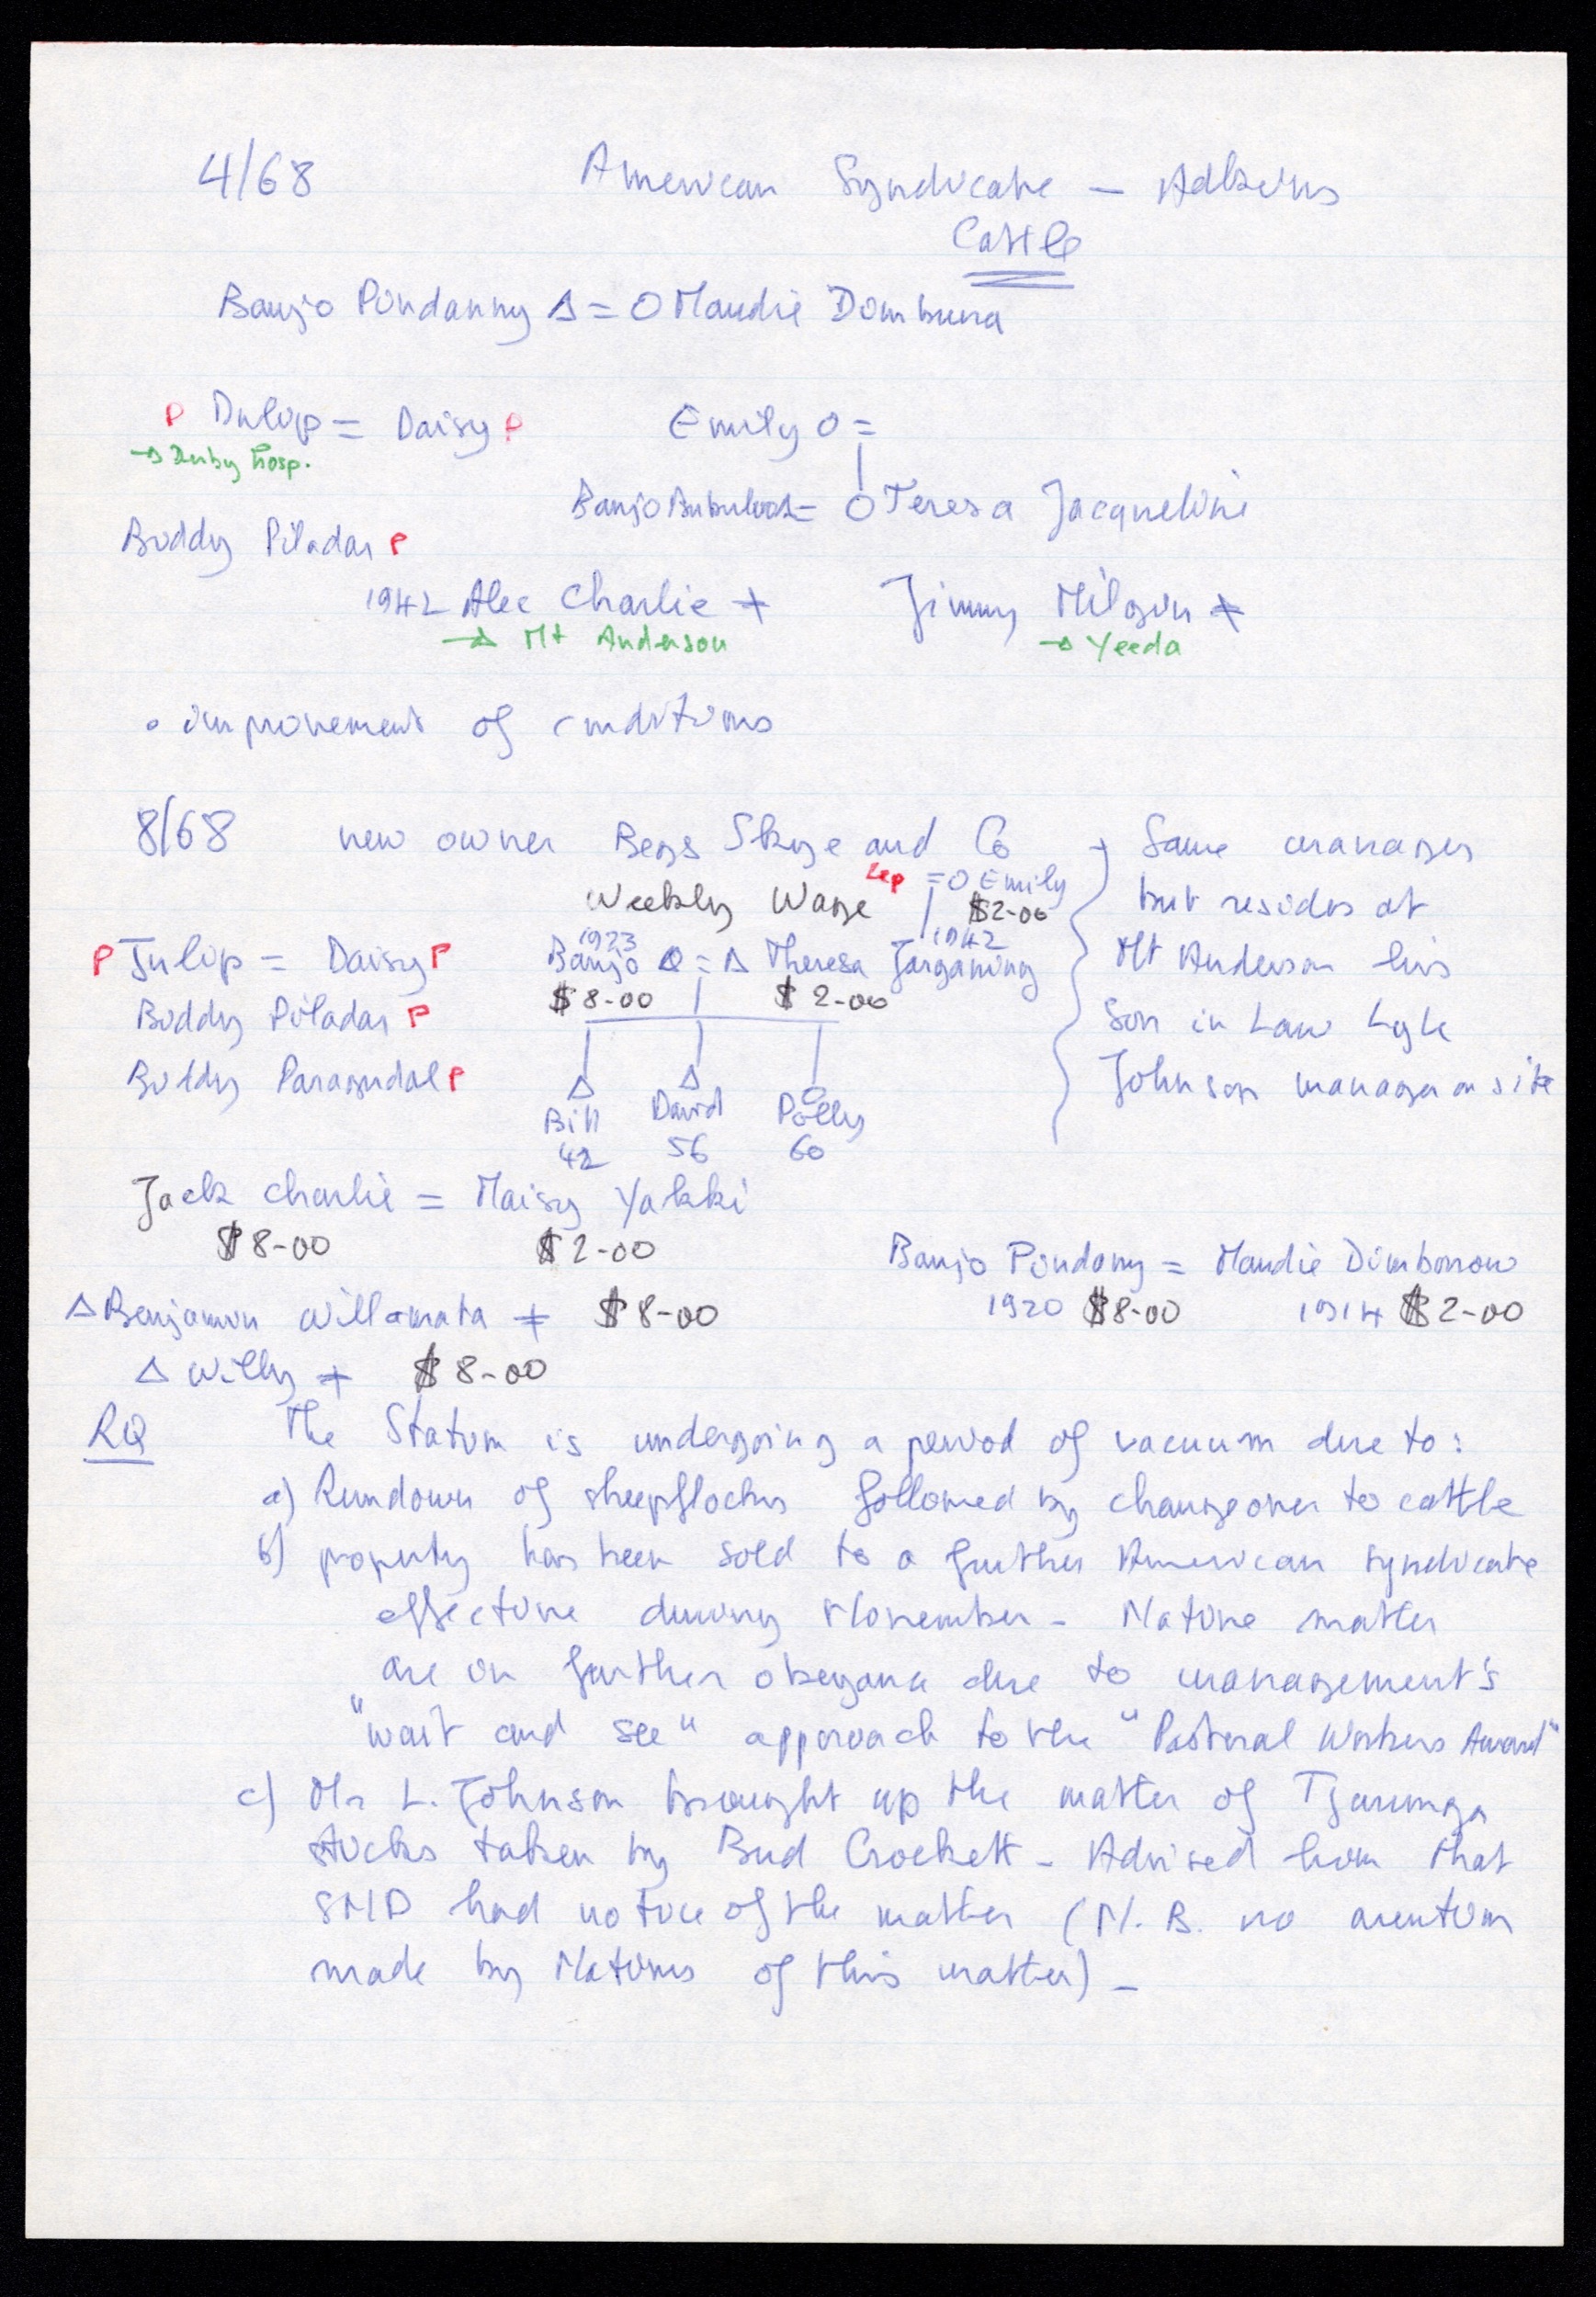 4/68 American Syndicate - Adkins
Cattle
Banjo Pindanny Δ = O Maudie Dimbura
P Dulop = Daisy P Emily O =
→ Derby Hosp.
Banjo = O Teresa Jacqueline
Buddy Piladan P
1942 Alec Charlie + Jimmy Milgin +
→ Mt Anderson → Yeeda
• improvement of conditions
8/68 new owner Skye and Co
Weekly Wage Lep = O Emily
$2-00
1923 1942
P Julop = Daisy P Banjo = Δ Theresa Jarganing
$8-00 $2-00
Buddy Piladar P
Buldy Paragudal P
Δ Δ O
Bill David Polly
42 56 60
Same manager
but resides at
Mt Anderson his
Son in Law Lyle
Johnson manager on site
Jack Charlie = Maisy Yakki
$8-00 $2-00
Banjo Pindany = Maudie Dimborrow
1920 $8-00 1914 $2-00
Δ Benjamin Willamata + $8-00
Δ Willy + $8-00
RQ The Station is undergoing a period of vacuum due to:
a) Rundown of sheepflocks followed by changeover to cattle
b) property has been sold to a further American syndicate
effective during November - Native matter
are in further obeyance due to management's
"wait and see" approach to the "Pastoral Workers Award"
c) Mr L. Johnson brought up the matter of Tjurunga
stocks taken by Bud Crockett - Advised him that
SND had notice of the matter (N.B. no mention
made by Natives of this matter) -